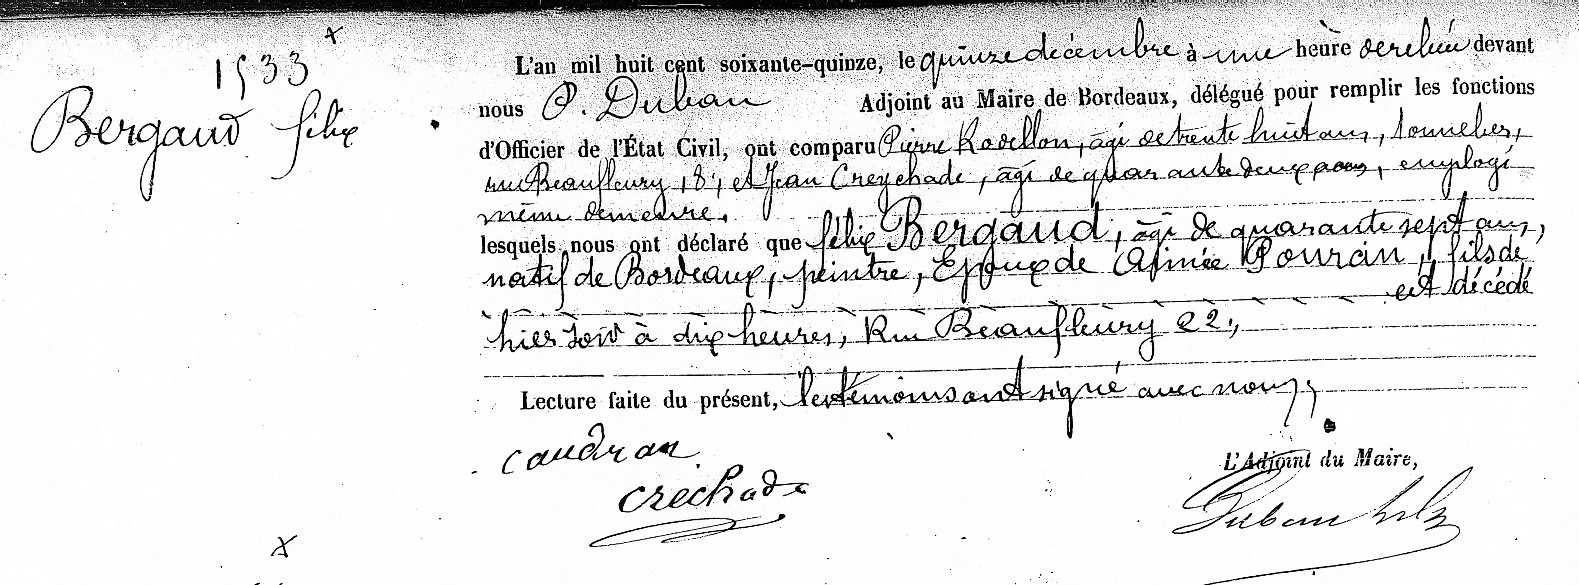 1533
Bergaud félix
L'an mil huit cent soixante-quinze, le quinze décembre à une heure de relevée devant
nous P. Duban Adjoint au Maire de Bordeaux, délégué pour remplir les fonctions
d'Officier de l'État Civil, ont comparu Pierre âgé de trente huit ans, tonnelier,
rue Beaufleury, 18, et Jean Creychade, âgé de quarante deux ans, employé
même demeure.
lesquels nous ont déclaré que félix Bergaud, âgé de quarante sept ans,
natif de Bordeaux, peintre, Epoux de Pourcin, fils de
est décédé
hier soir à dix heures, Rue Beaufleury 22,
Lecture faite du présent, les témoins ont signé avec nous,
caudran
crechade
L'Adjoint du Maire,
Duban